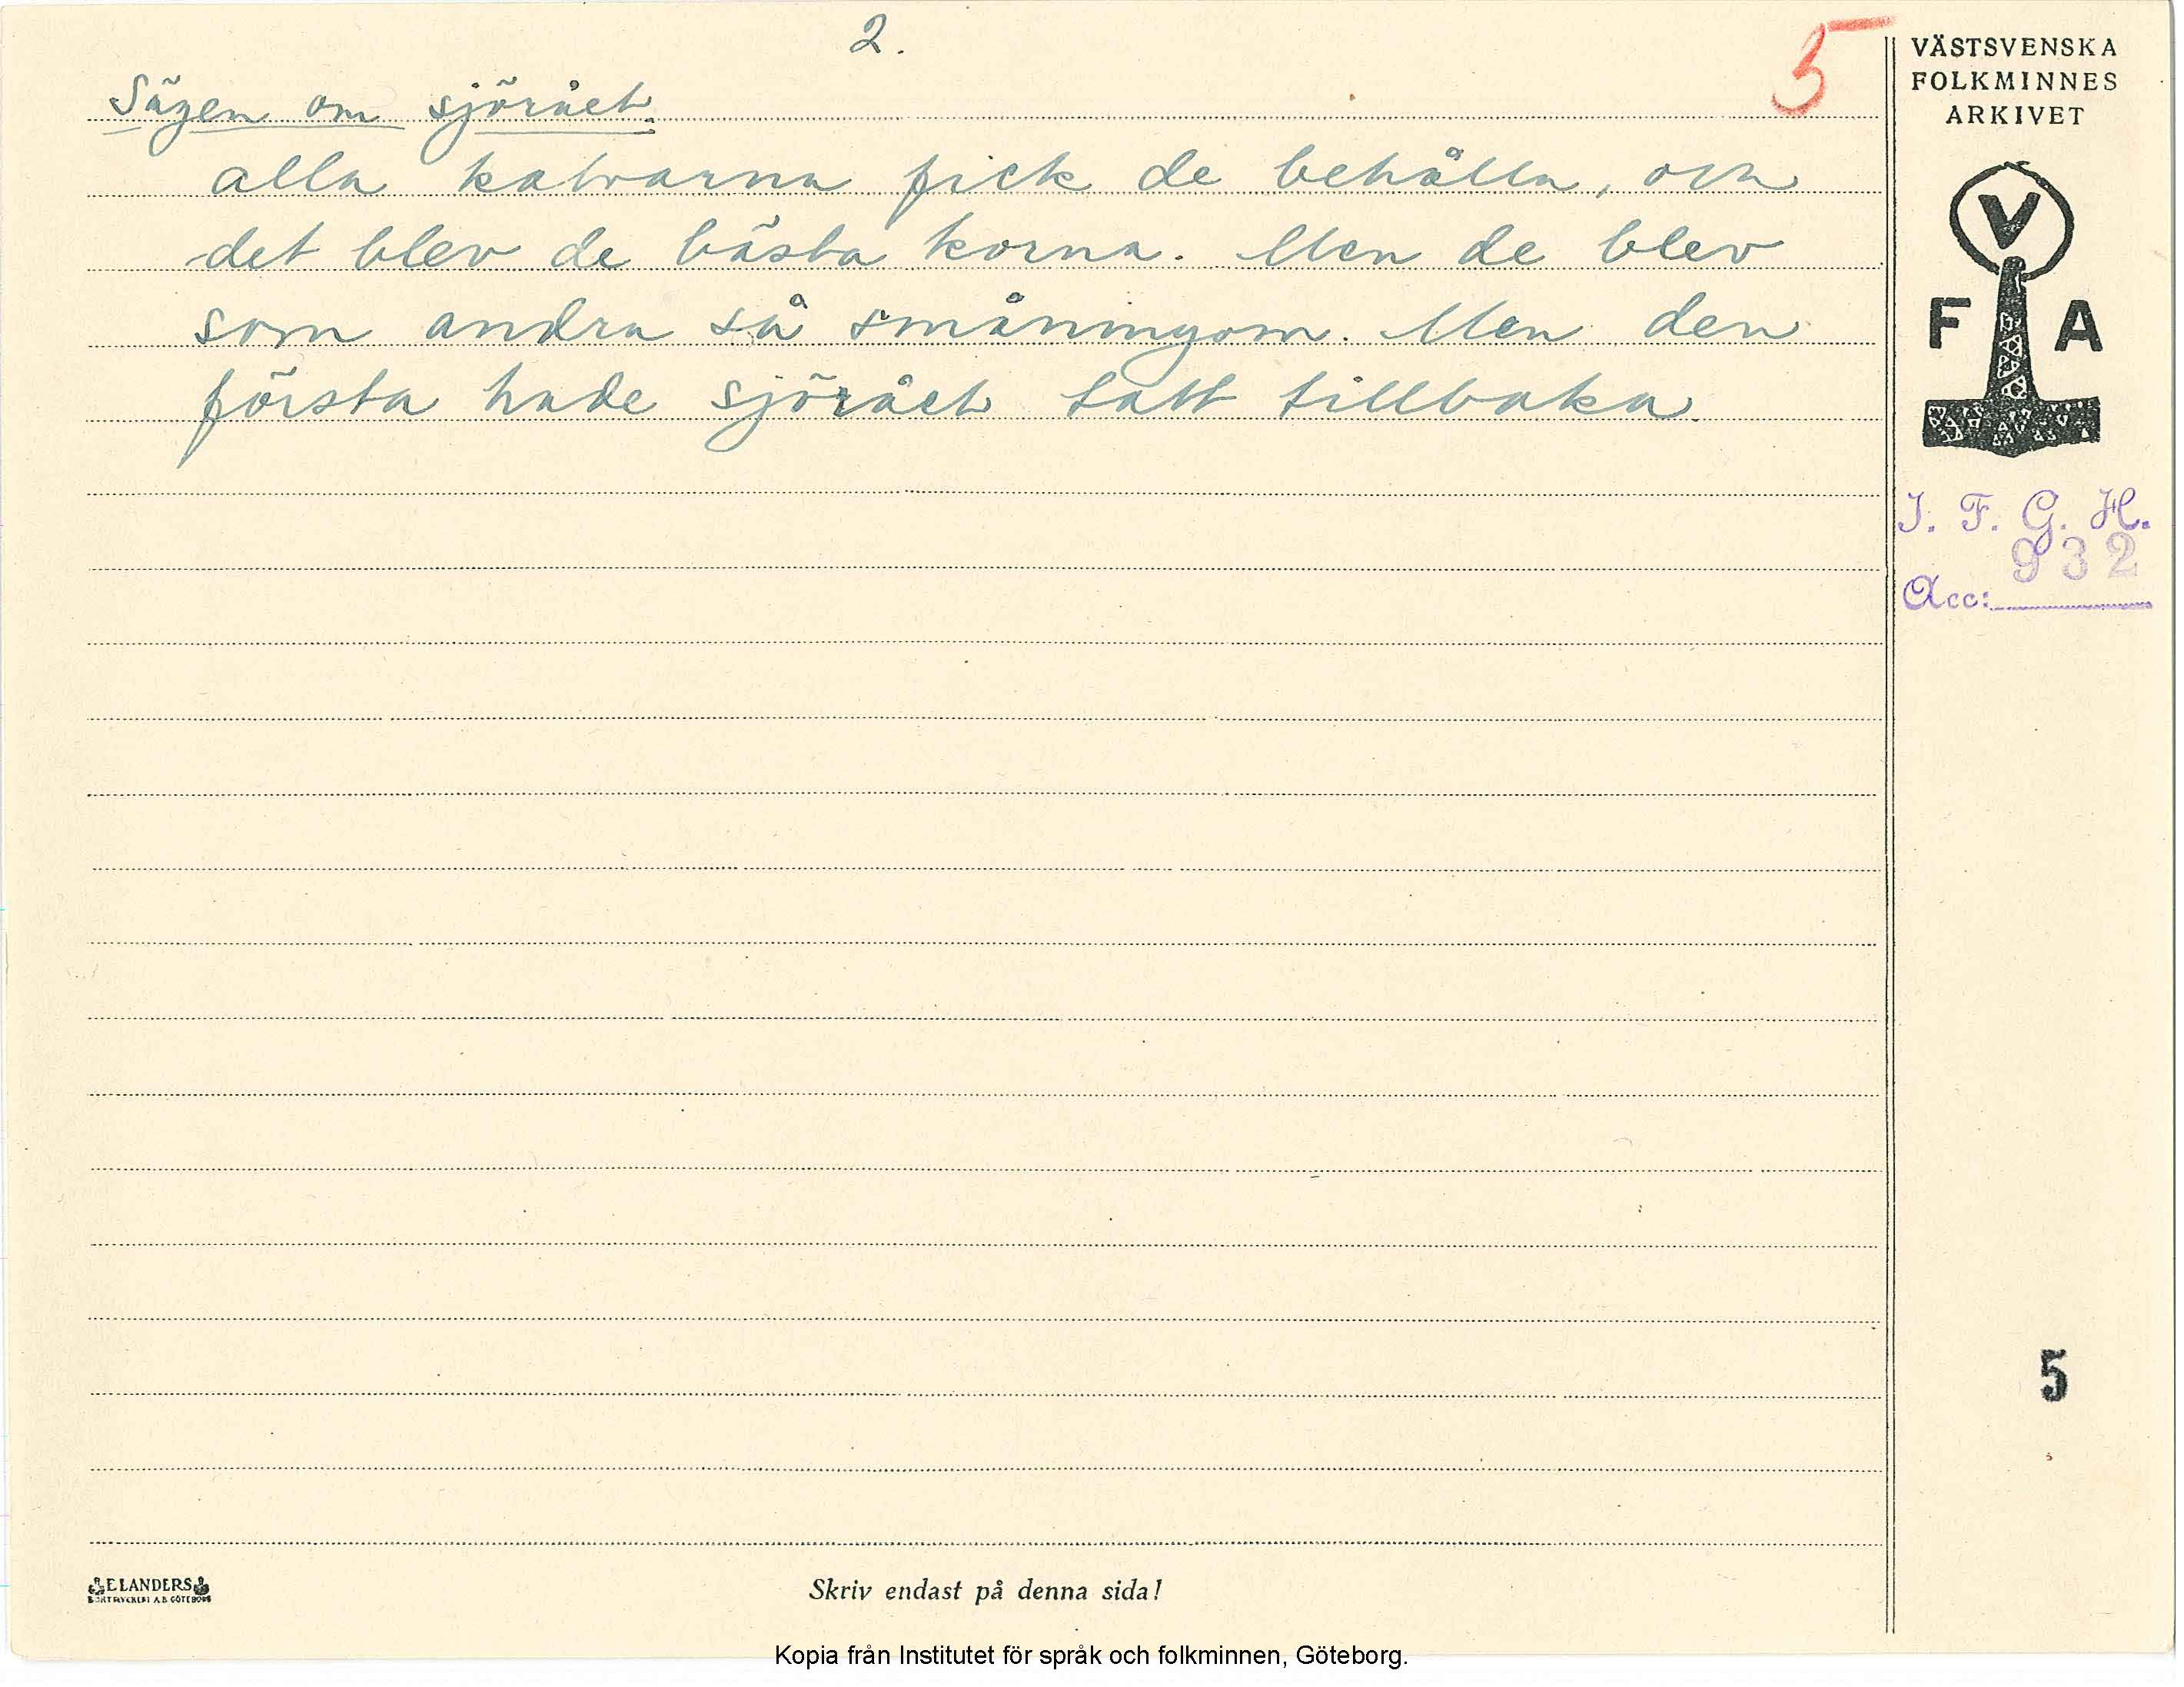 2.
5
Sägen om sjörået.
alla kalvarna fick de behålla, och
det blev de bästa korna. Men de blev
som andra så småningom. Men den
första hade sjörået tatt tillbaka.
VÄSTSVENSKA
FOLKMINNES
ARKIVET
V
F A
I. F. G. H.
932
Acc:
5
ELANDERS
BOKTRYCKERI A.B. GÖTEBORG
Skriv endast på denna sida!
Kopia från Institutet för språk och folkminnen, Göteborg.